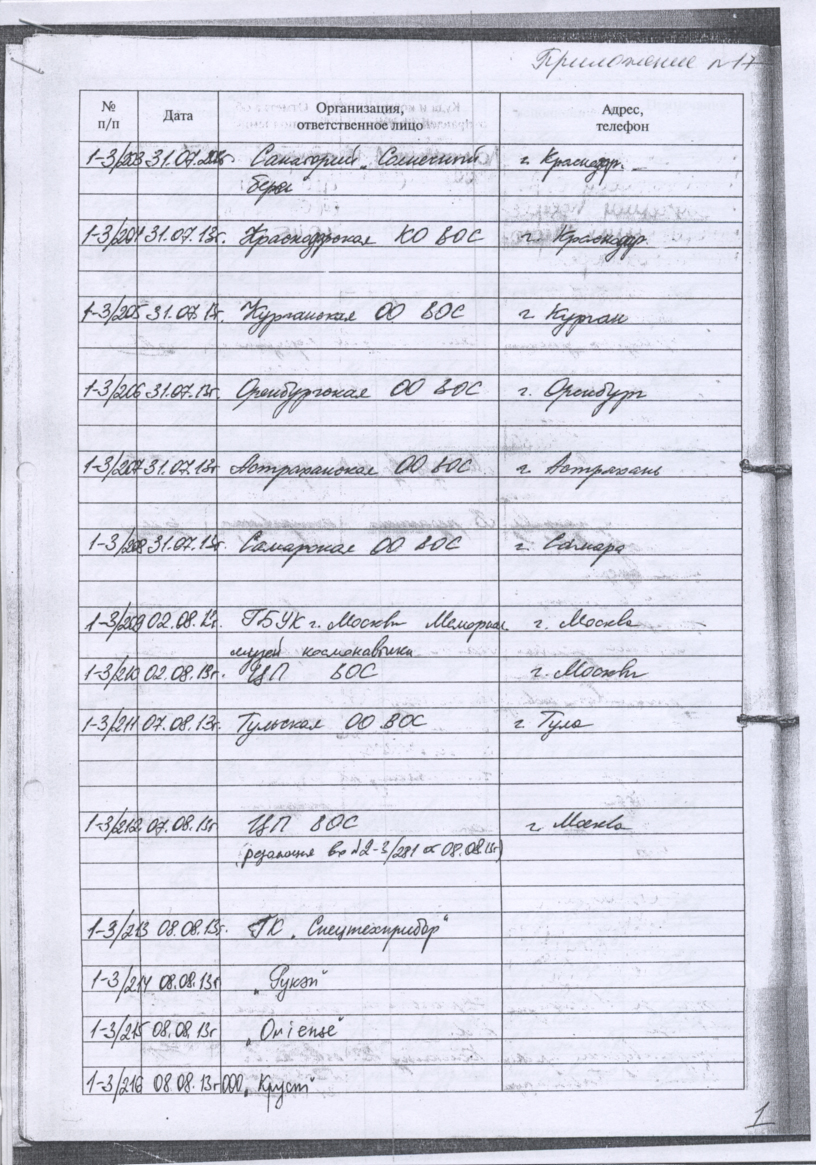 Приложение №17
№ п/п Дата Организация, ответственное лицо Адрес, телефон
1-3/203 31.07. Санаторий „Солнечный г. Краснодар.
берег
1-3/204 31.07.13г. Краснодарская КО ВОС г. Краснодар.
1-3/205 31.07.13г. Курганская ОО ВОС г. Курган
1-3/206 31.07.13г. Оренбургская ОО ВОС г. Оренбург
1-3/207 31.07.13г Астраханская ОО ВОС г. Астрахань
1-3/208 31.07.13г. Самарская ОО ВОС г. Самара
1-3/209 02.08.13г. ГБУК г. Москвы Мемориал. г. Москва
музей космонавтики
1-3/210 02.08.13г. ЦП ВОС г. Москва
1-3/211 07.08.13г. Тульская ОО ВОС г. Тула
1-3/212 07.08.13г ЦП ВОС г. Москва
(резолюция вх №2-3/281 от 08.08.13г)
1-3/213 08.08.13г. ГК „Спецтехприбор"
1-3/214 08.08.13г
1-3/215 08.08.13г
1-3/216 08.08.13г ООО „Круст"
1